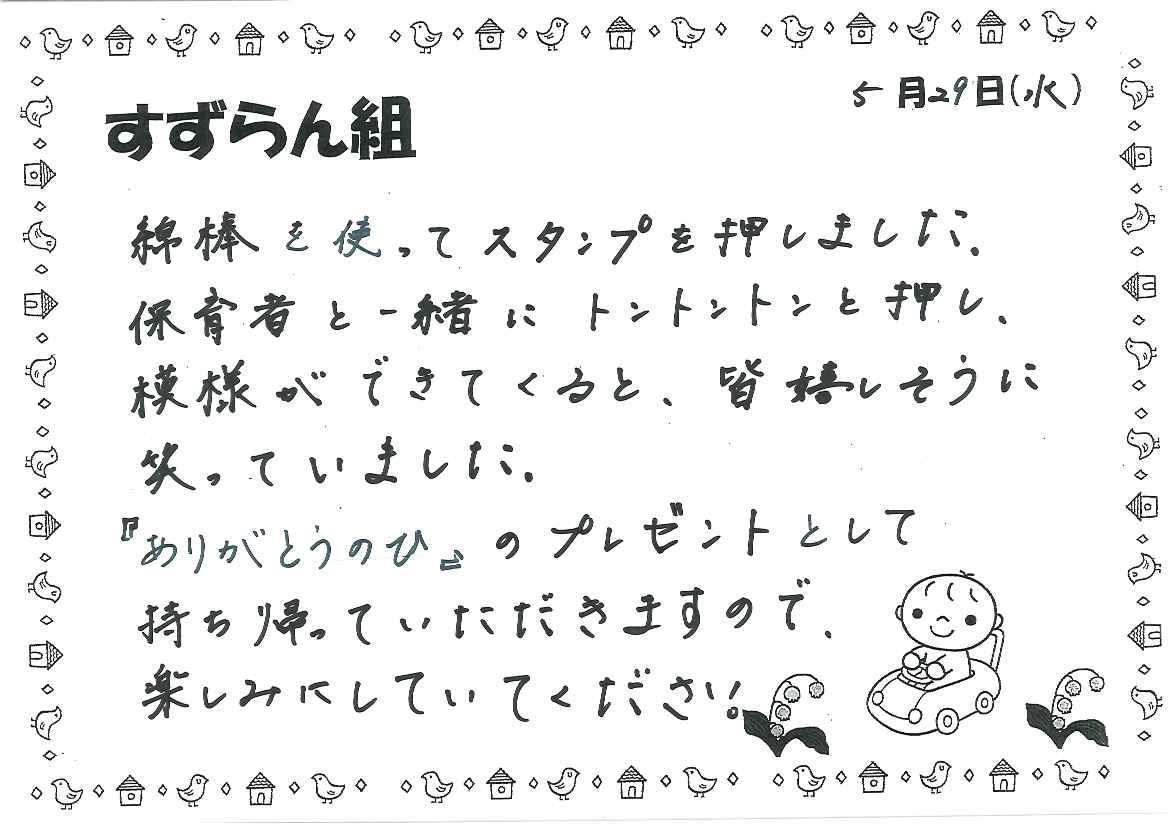 5月29日(水)
すずらん組
綿棒を使ってスタンプを押しました。
保育者と一緒にトントントンと押し、
模様ができてくると、皆嬉しそうに
笑っていました。
『ありがとうのひ』のプレゼントとして
持ち帰っていただきますので、
楽しみにしていてください!